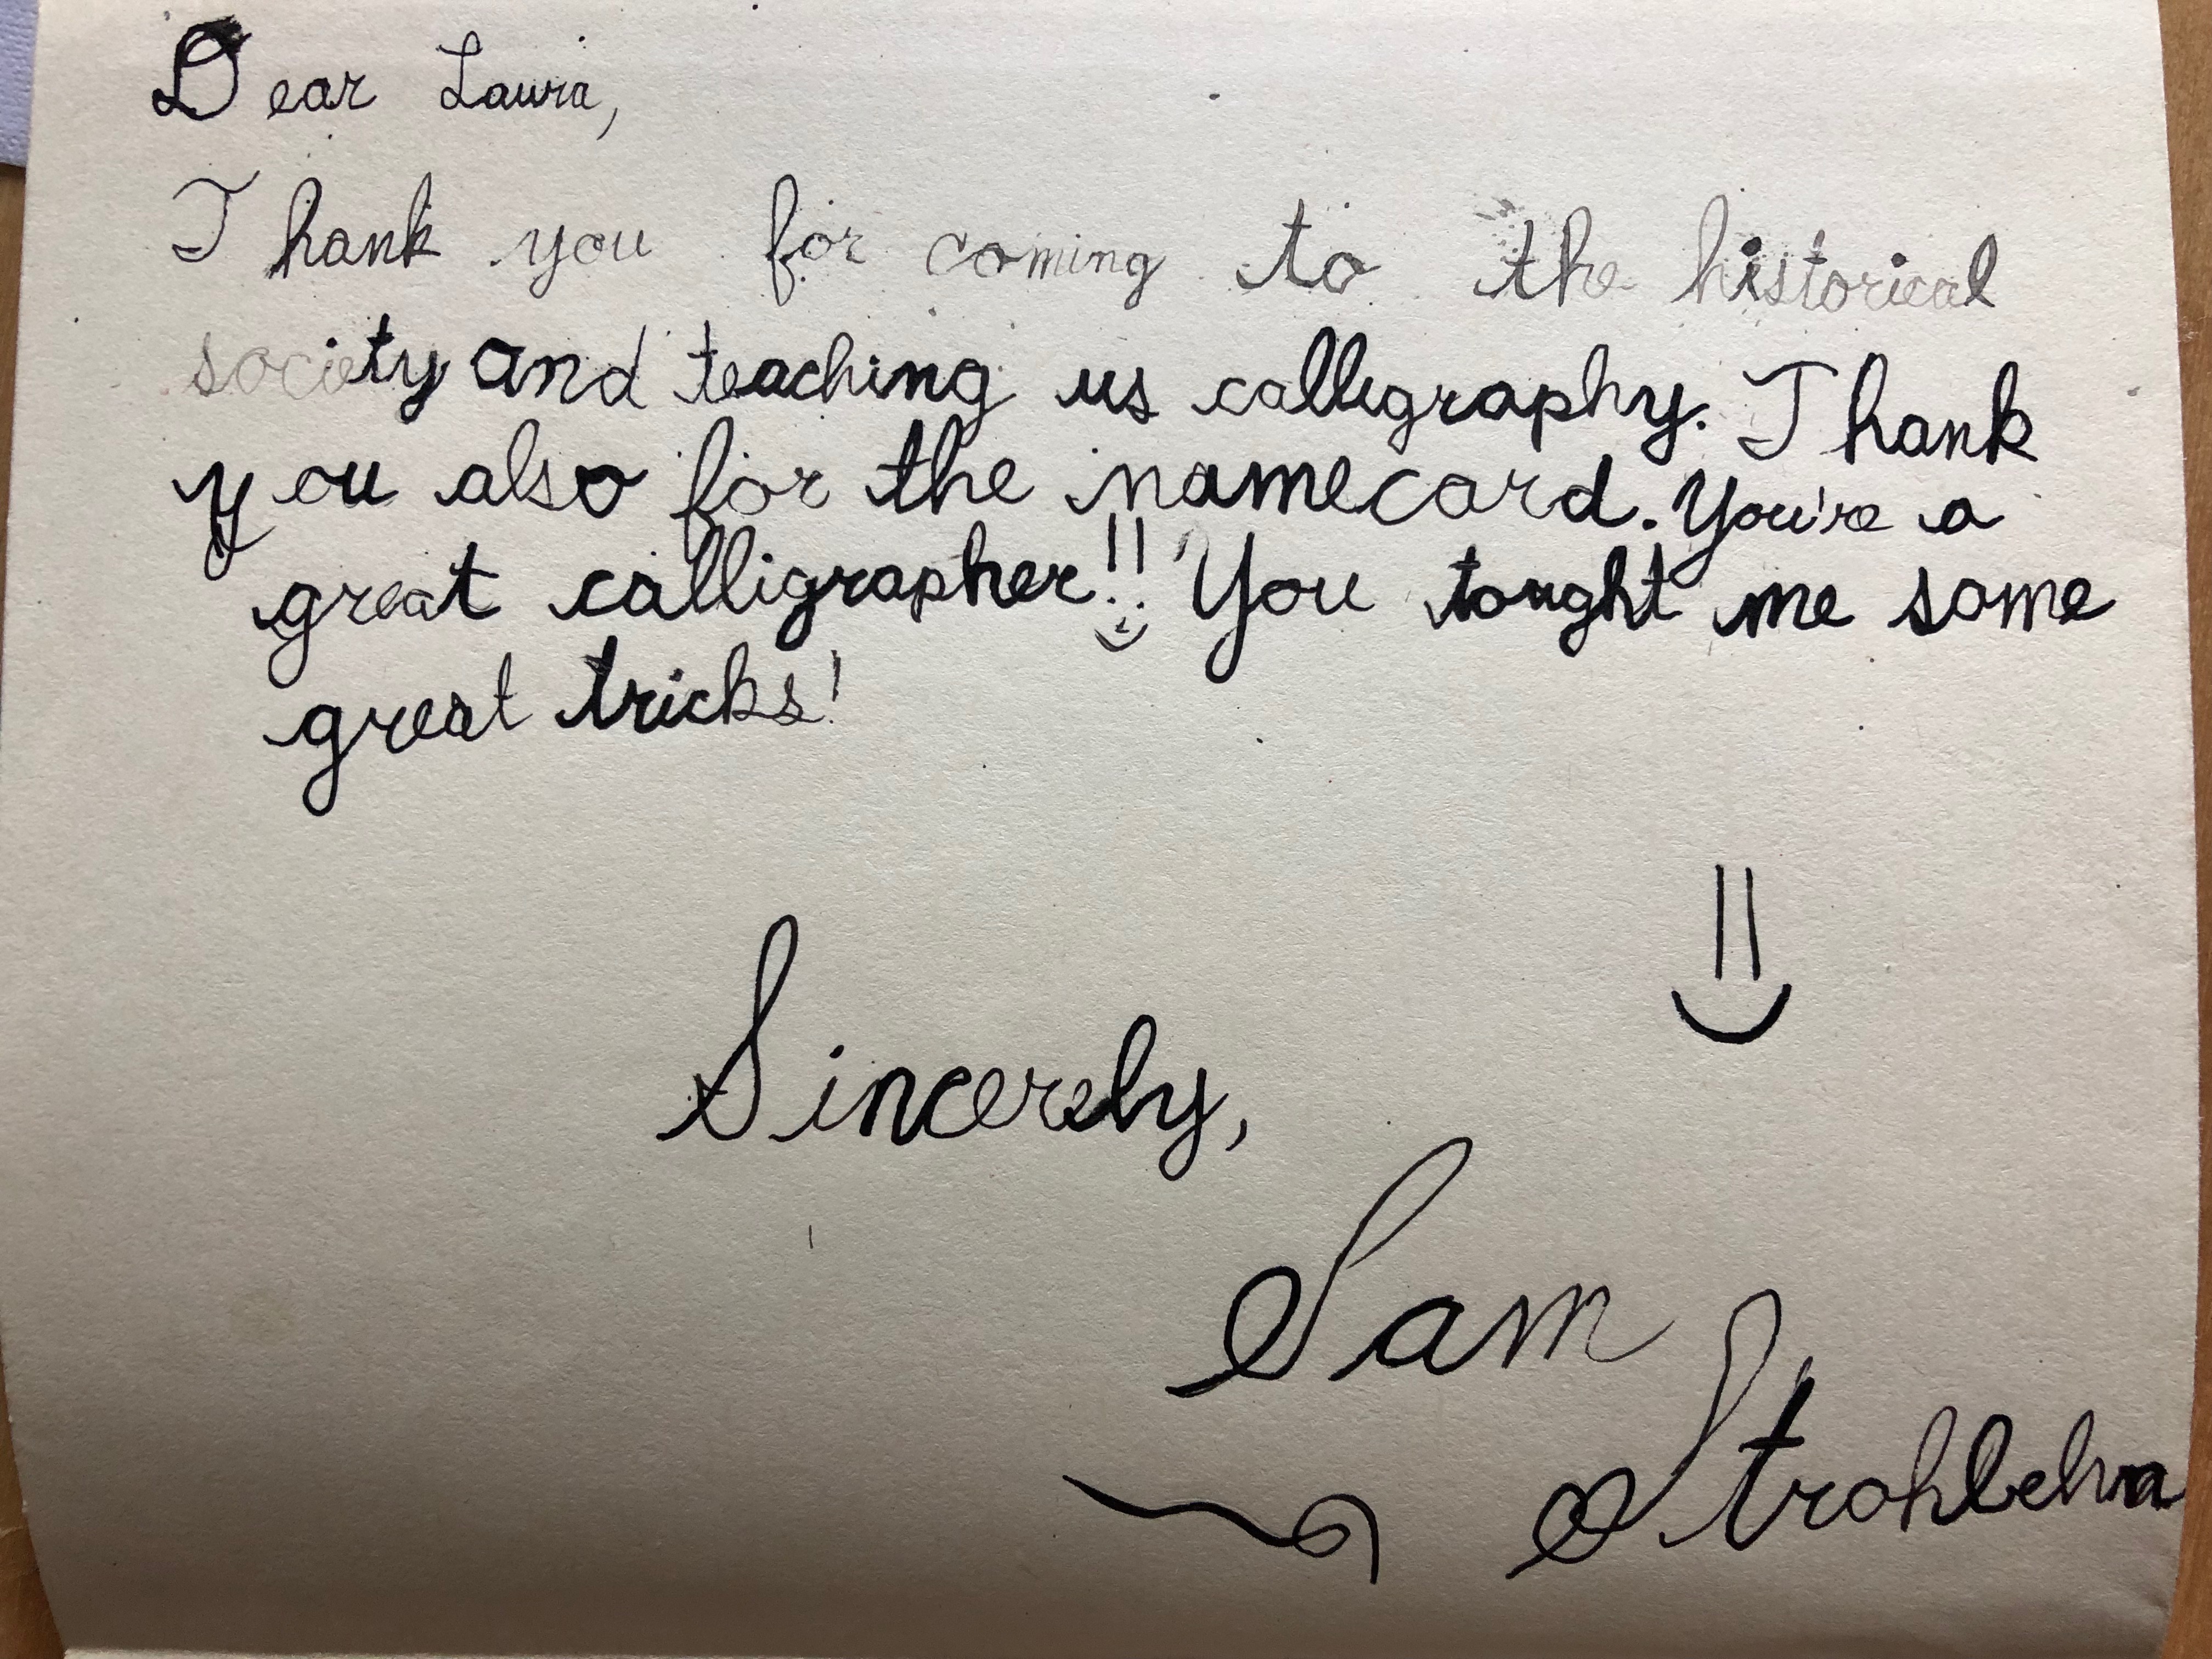 Dear Laura,
Thank you for coming to the historical
society and teaching us calligraphy. Thank
you also for the namecard. You're a
great calligrapher!! You tought me some
great tricks!
Sincerely,
Sam